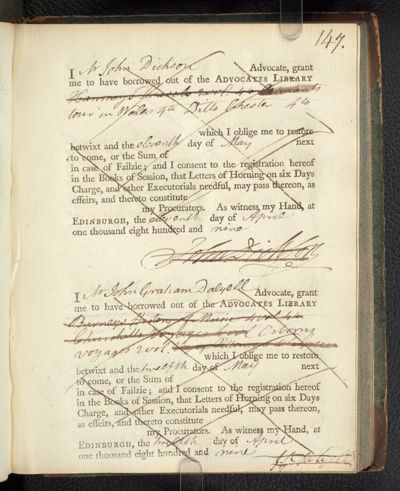 147.
I Mr John Dickson Advocate, grant
me to have borrowed out of the ADVOCATES LIBRARY
tour in Wales 4to Ditto Chester 4to
which I oblige me to restore
betwixt and the eleventh day of May next
to come, or the Sum of
in case of Failzie; and I consent to the registration hereof
in the Books of Session, that Letters of Horning on six Days
Charge, and other Executorials needful, may pass thereon, as
effeirs, and thereto constitute
my Procurators. As witness my Hand, at
EDINBURGH, the eleventh day of April
one thousand eight hundred and nine
John Dickson
I Mr John Graham Dalyell Advocate, grant
me to have borrowed out of the ADVOCATES LIBRARY
Burneys History of Music 4 vol. 4to
Churchills Voyages Osborns
voyages 2 vol.
which I oblige me to restore
betwixt and the twelfth day of May next
to come, or the Sum of
in case of Failzie; and I consent to the registration hereof
in the Books of Session, that Letters of Horning on six Days
Charge, and other Executorials needful, may pass thereon,
as effeirs, and thereto constitute
my Procurators. As witness my Hand, at
EDINBURGH, the twelfth day of April
one thousand eight hundred and nine